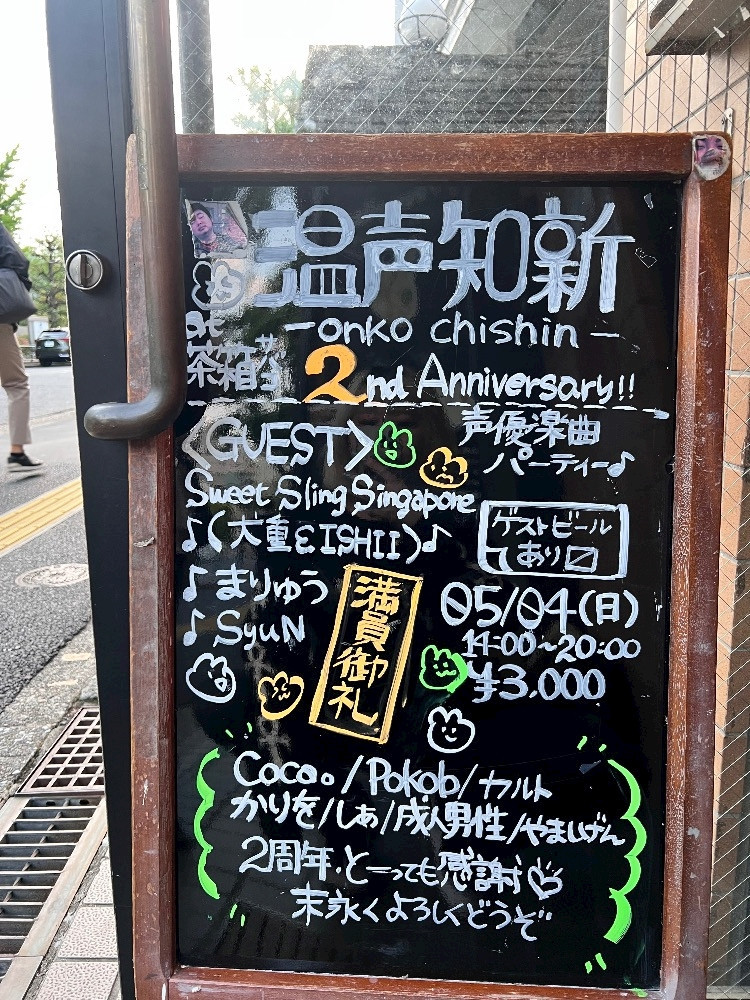 温声知新
-onko chishin-
at
茶箱 サバコ
2nd Anniversary!!
<GUEST>
声優楽曲
パーティー♪
Sweet Sling Singapore
♪(大重&ISHII)♪
ゲストビール
あり〼
♪まりゅう
♪SyuN
満員御礼
05/04(日)
14:00~20:00
¥3,000
Coco。/Pokob/カルト
かりを/しぁ/成人男性/やまいげん
2周年、とーっても感謝♡
末永くよろしくどうぞ